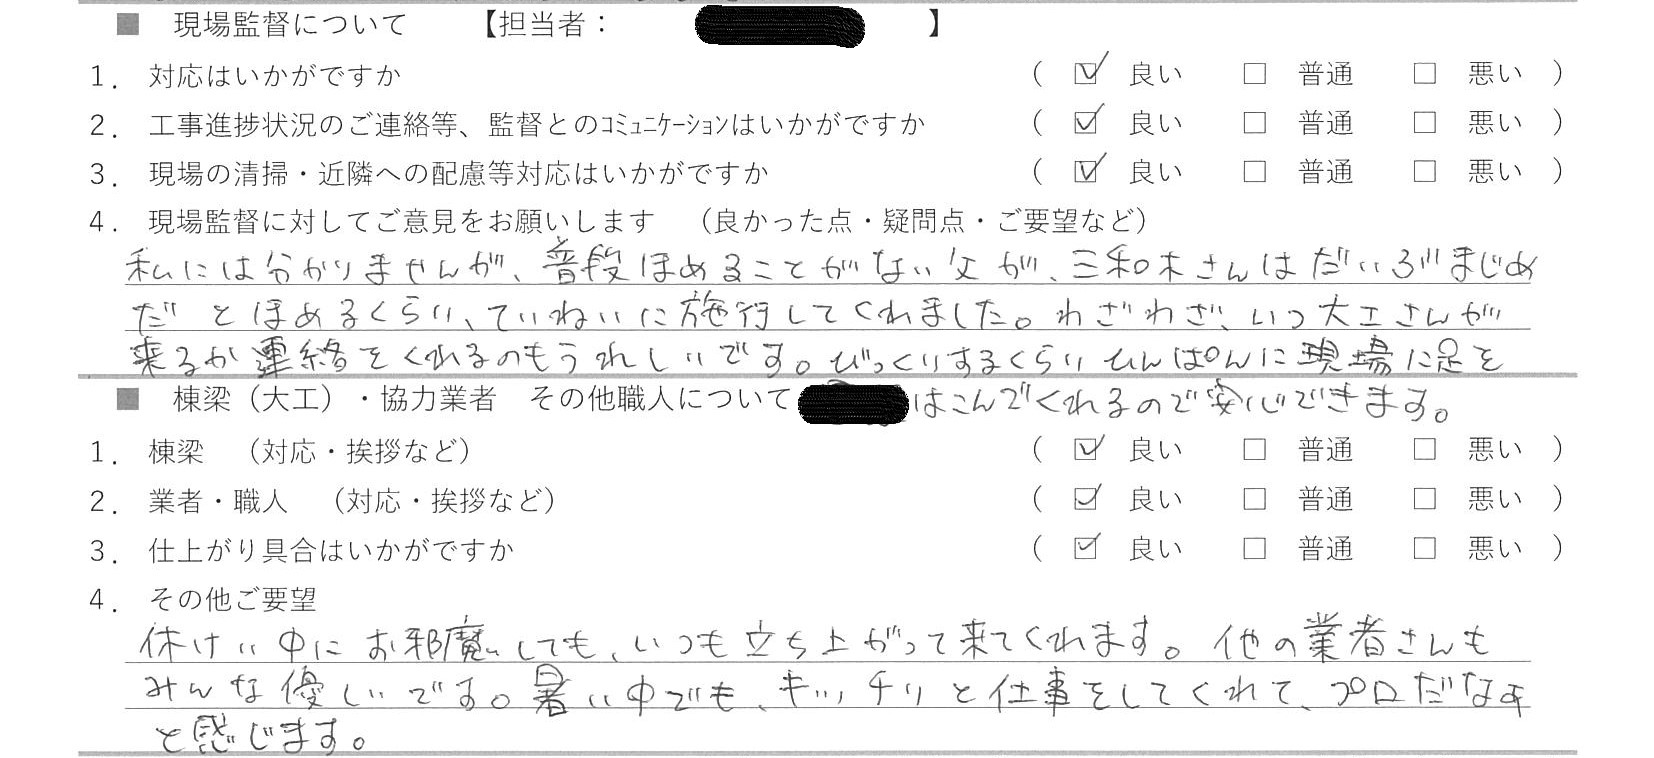 ■ 現場監督について 【担当者： 】
1. 対応はいかがですか （ ☑ 良い □ 普通 □ 悪い ）
2. 工事進捗状況のご連絡等、監督とのｺﾐｭﾆｹｰｼｮﾝはいかがですか （ ☑ 良い □ 普通 □ 悪い ）
3. 現場の清掃・近隣への配慮等対応はいかがですか （ ☑ 良い □ 普通 □ 悪い ）
4. 現場監督に対してご意見をお願いします （良かった点・疑問点・ご要望など）
私には分かりませんが、普段ほめることがない父が、三和木さんはだいぶまじめ
だとほめるくらい、ていねいに施行してくれました。わざわざ、いつ大工さんが
来るか連絡をくれるのもうれしいです。びっくりするくらいひんぱんに現場に足を
はこんでくれるので安心できます。
■ 棟梁（大工）・協力業者 その他職人について
1. 棟梁 （対応・挨拶など） （ ☑ 良い □ 普通 □ 悪い ）
2. 業者・職人 （対応・挨拶など） （ ☑ 良い □ 普通 □ 悪い ）
3. 仕上がり具合はいかがですか （ ☑ 良い □ 普通 □ 悪い ）
4. その他ご要望
休けい中にお邪魔しても、いつも立ち上がって来てくれます。他の業者さんも
みんな優しいです。暑い中でも、キッチリと仕事をしてくれて、プロだなぁ
と感じます。